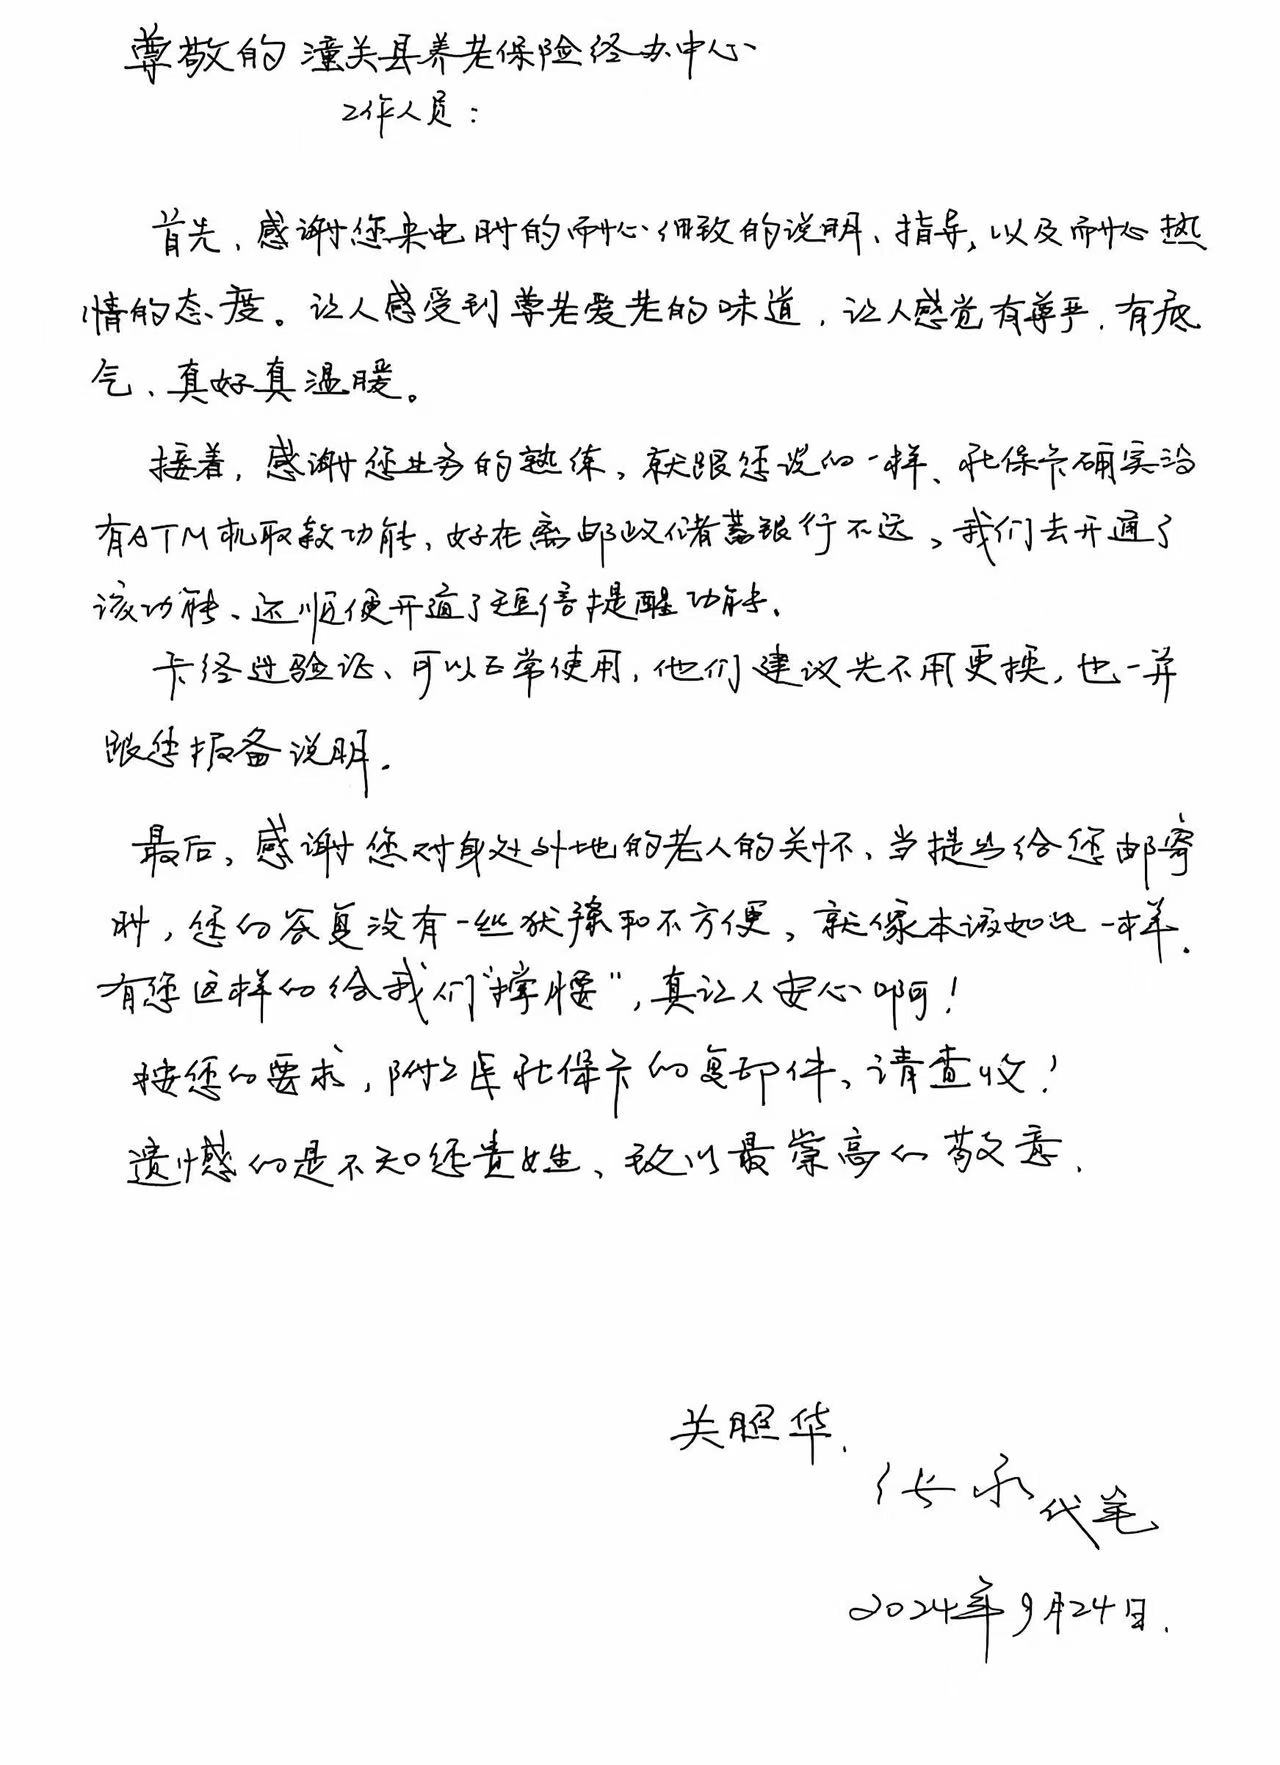 尊敬的潼关县养老保险经办中心
工作人员：
首先，感谢您来电时的耐心细致的说明、指导，以及耐心热
情的态度。让人感受到尊老爱老的味道，让人感觉有尊严，有底
气、真好真温暖。
接着，感谢您业务的熟练，就跟您说的一样、社保卡确实没
有ATM机取款功能，好在离邮政储蓄银行不远，我们去开通了
该功能、还顺便开通了短信提醒功能。
卡经过验证、可以正常使用，他们建议先不用更换，也一并
跟您报备说明.
最后，感谢您对身处外地的老人的关怀、当提出给您邮寄
时，您的答复没有一丝犹豫和不方便，就像本该如此一样.
有您这样的给我们“撑腰”，真让人安心啊！
按您的要求，附2号社保卡的复印件、请查收！
遗憾的是不知您贵姓、致以最崇高的敬意.
关照华.
代笔
2024年9月24日.